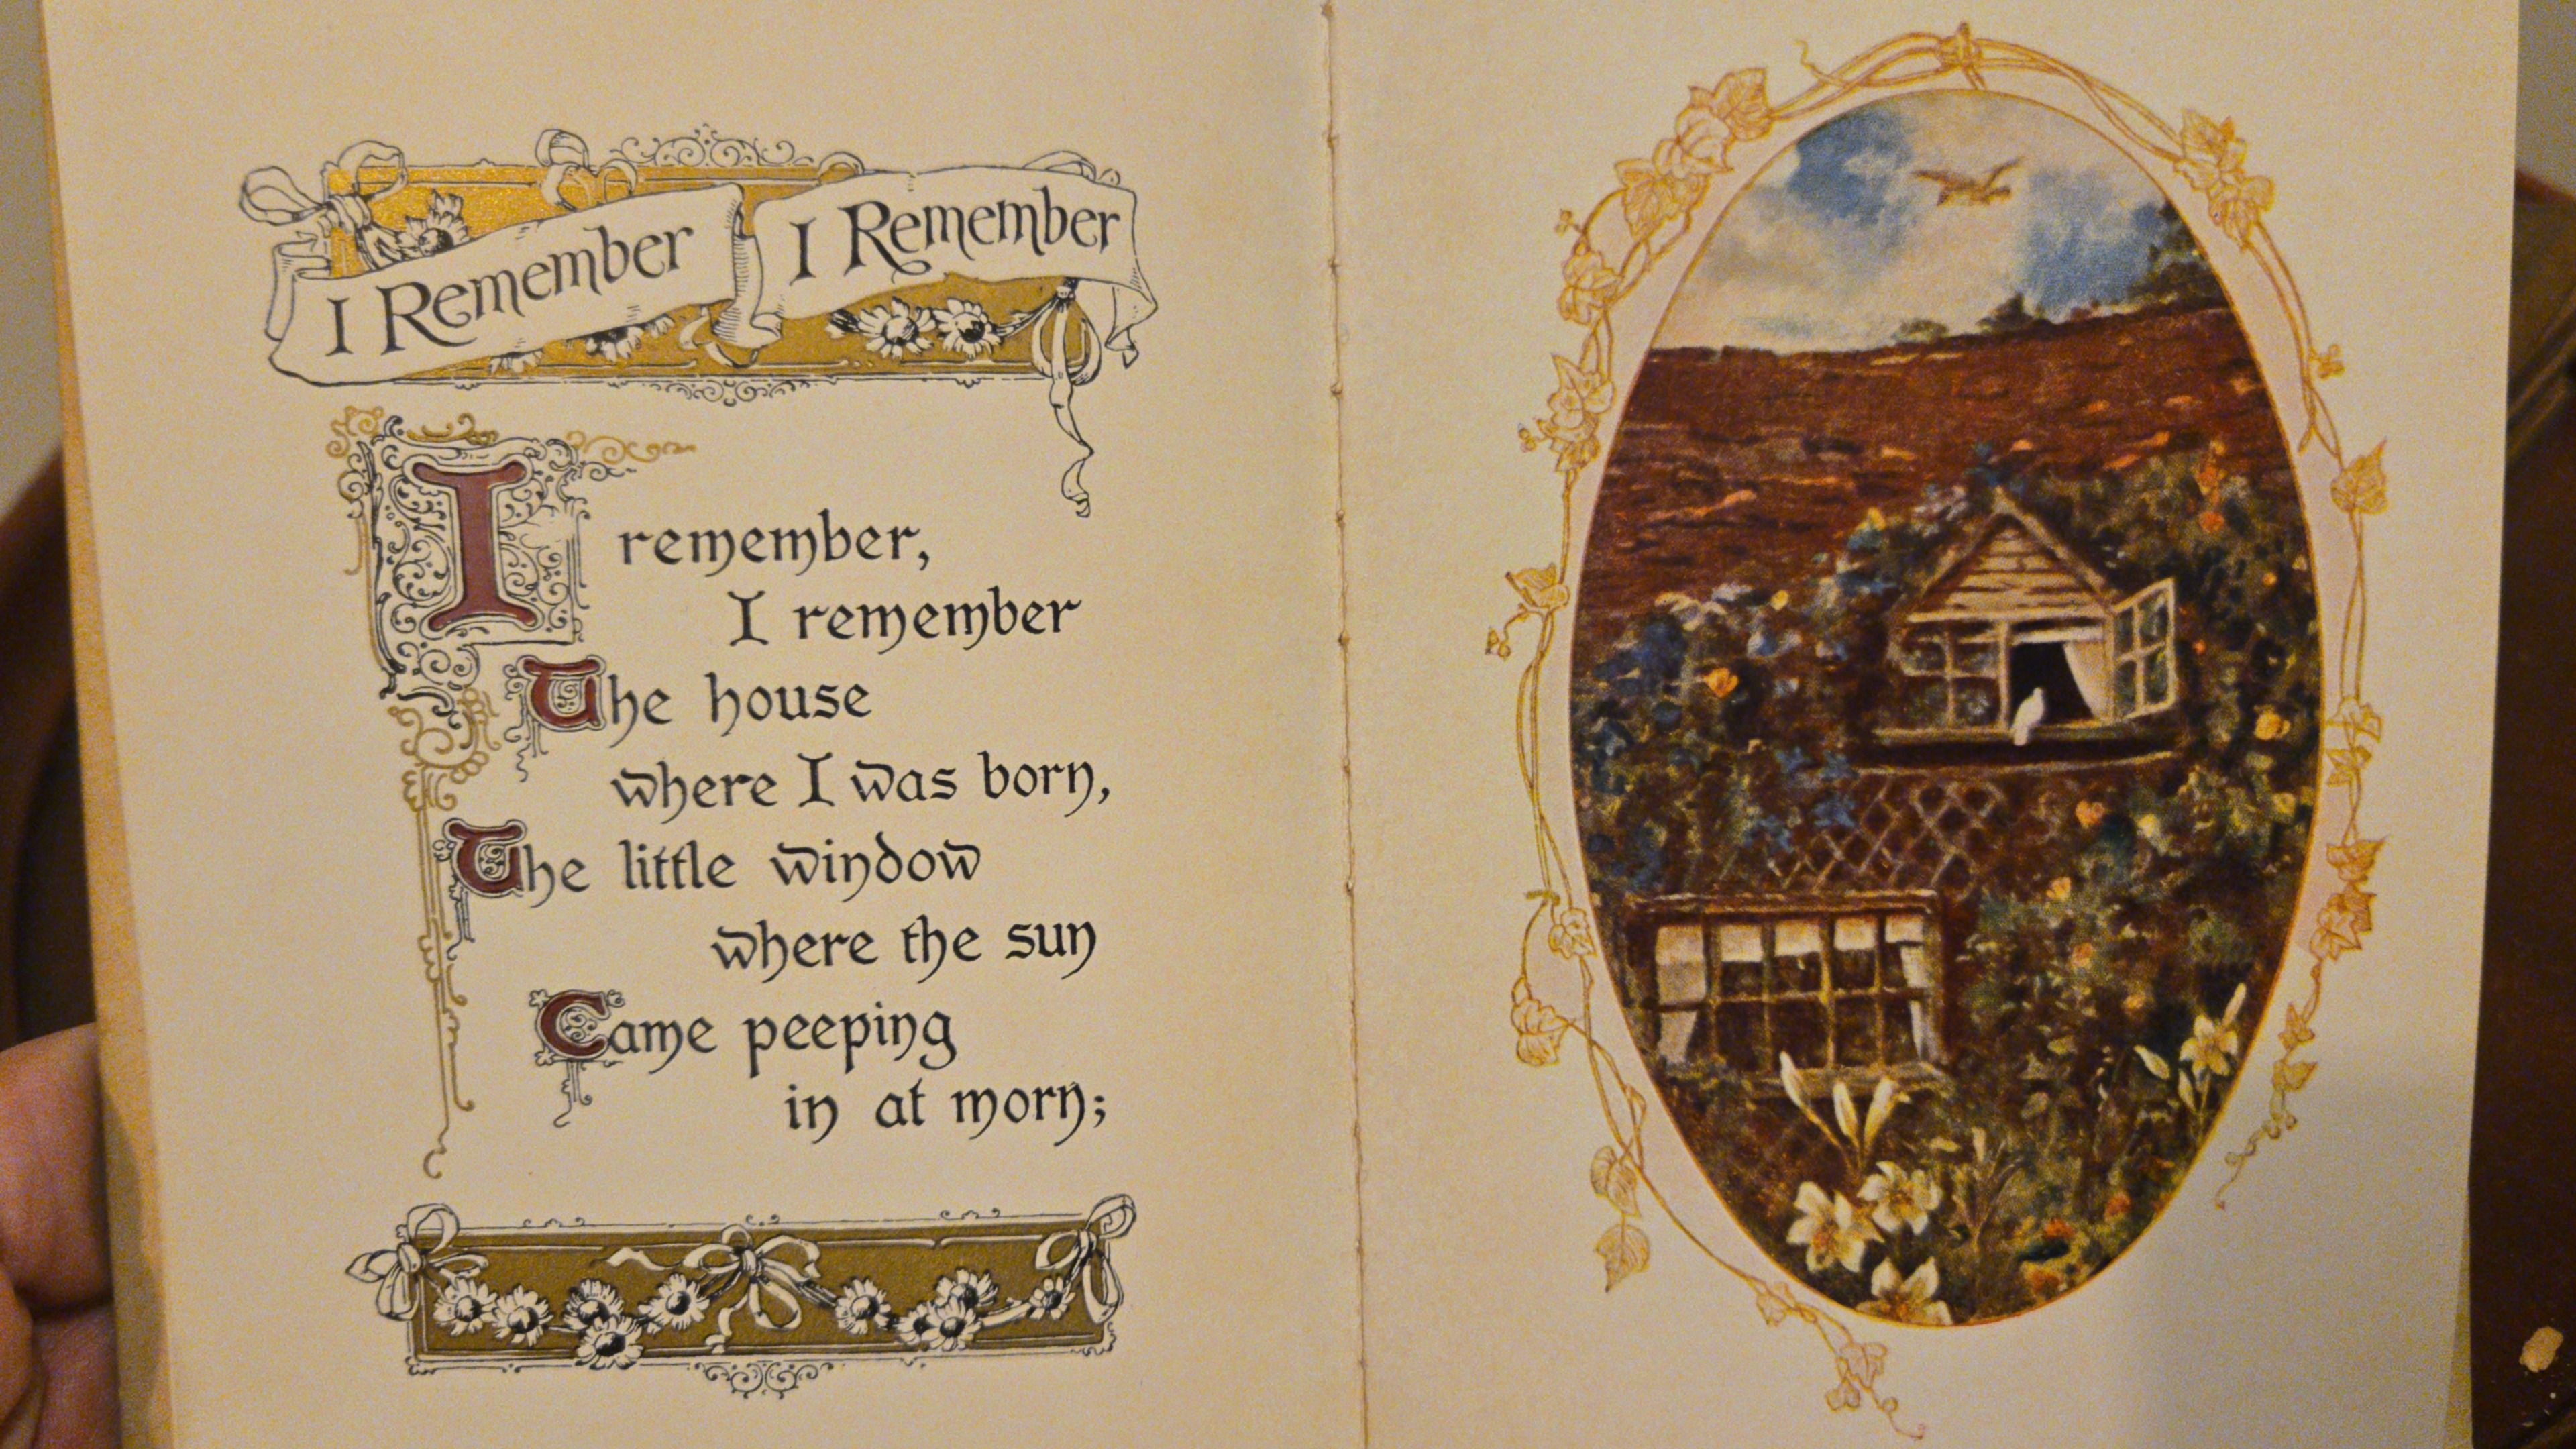 I Remember I Remember
I remember,
I remember
The house
where I was born,
The little window
where the sun
Came peeping
in at morn;